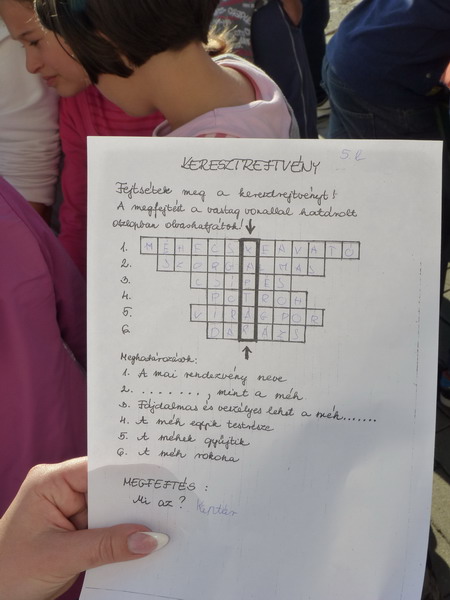 KERESZTREJTVÉNY 5. a
Fejtsétek meg a keresztrejtvényt!
A megfejtést a vastag vonallal határolt
oszlopban olvashatjátok!
1. MÉHECSKEAVATÓ
2. SZORGALMAS
3. CSÍPÉS
4. POTROH
5. VIRÁGPOR
6. DARÁZS
Meghatározások:
1. A mai rendezvény neve
2. ........, mint a méh
3. Fájdalmas és veszélyes lehet a méh.......
4. A méh egyik testrésze
5. A méhek gyűjtik
6. A méh rokona
MEGFEJTÉS:
Mi az? Kaptár